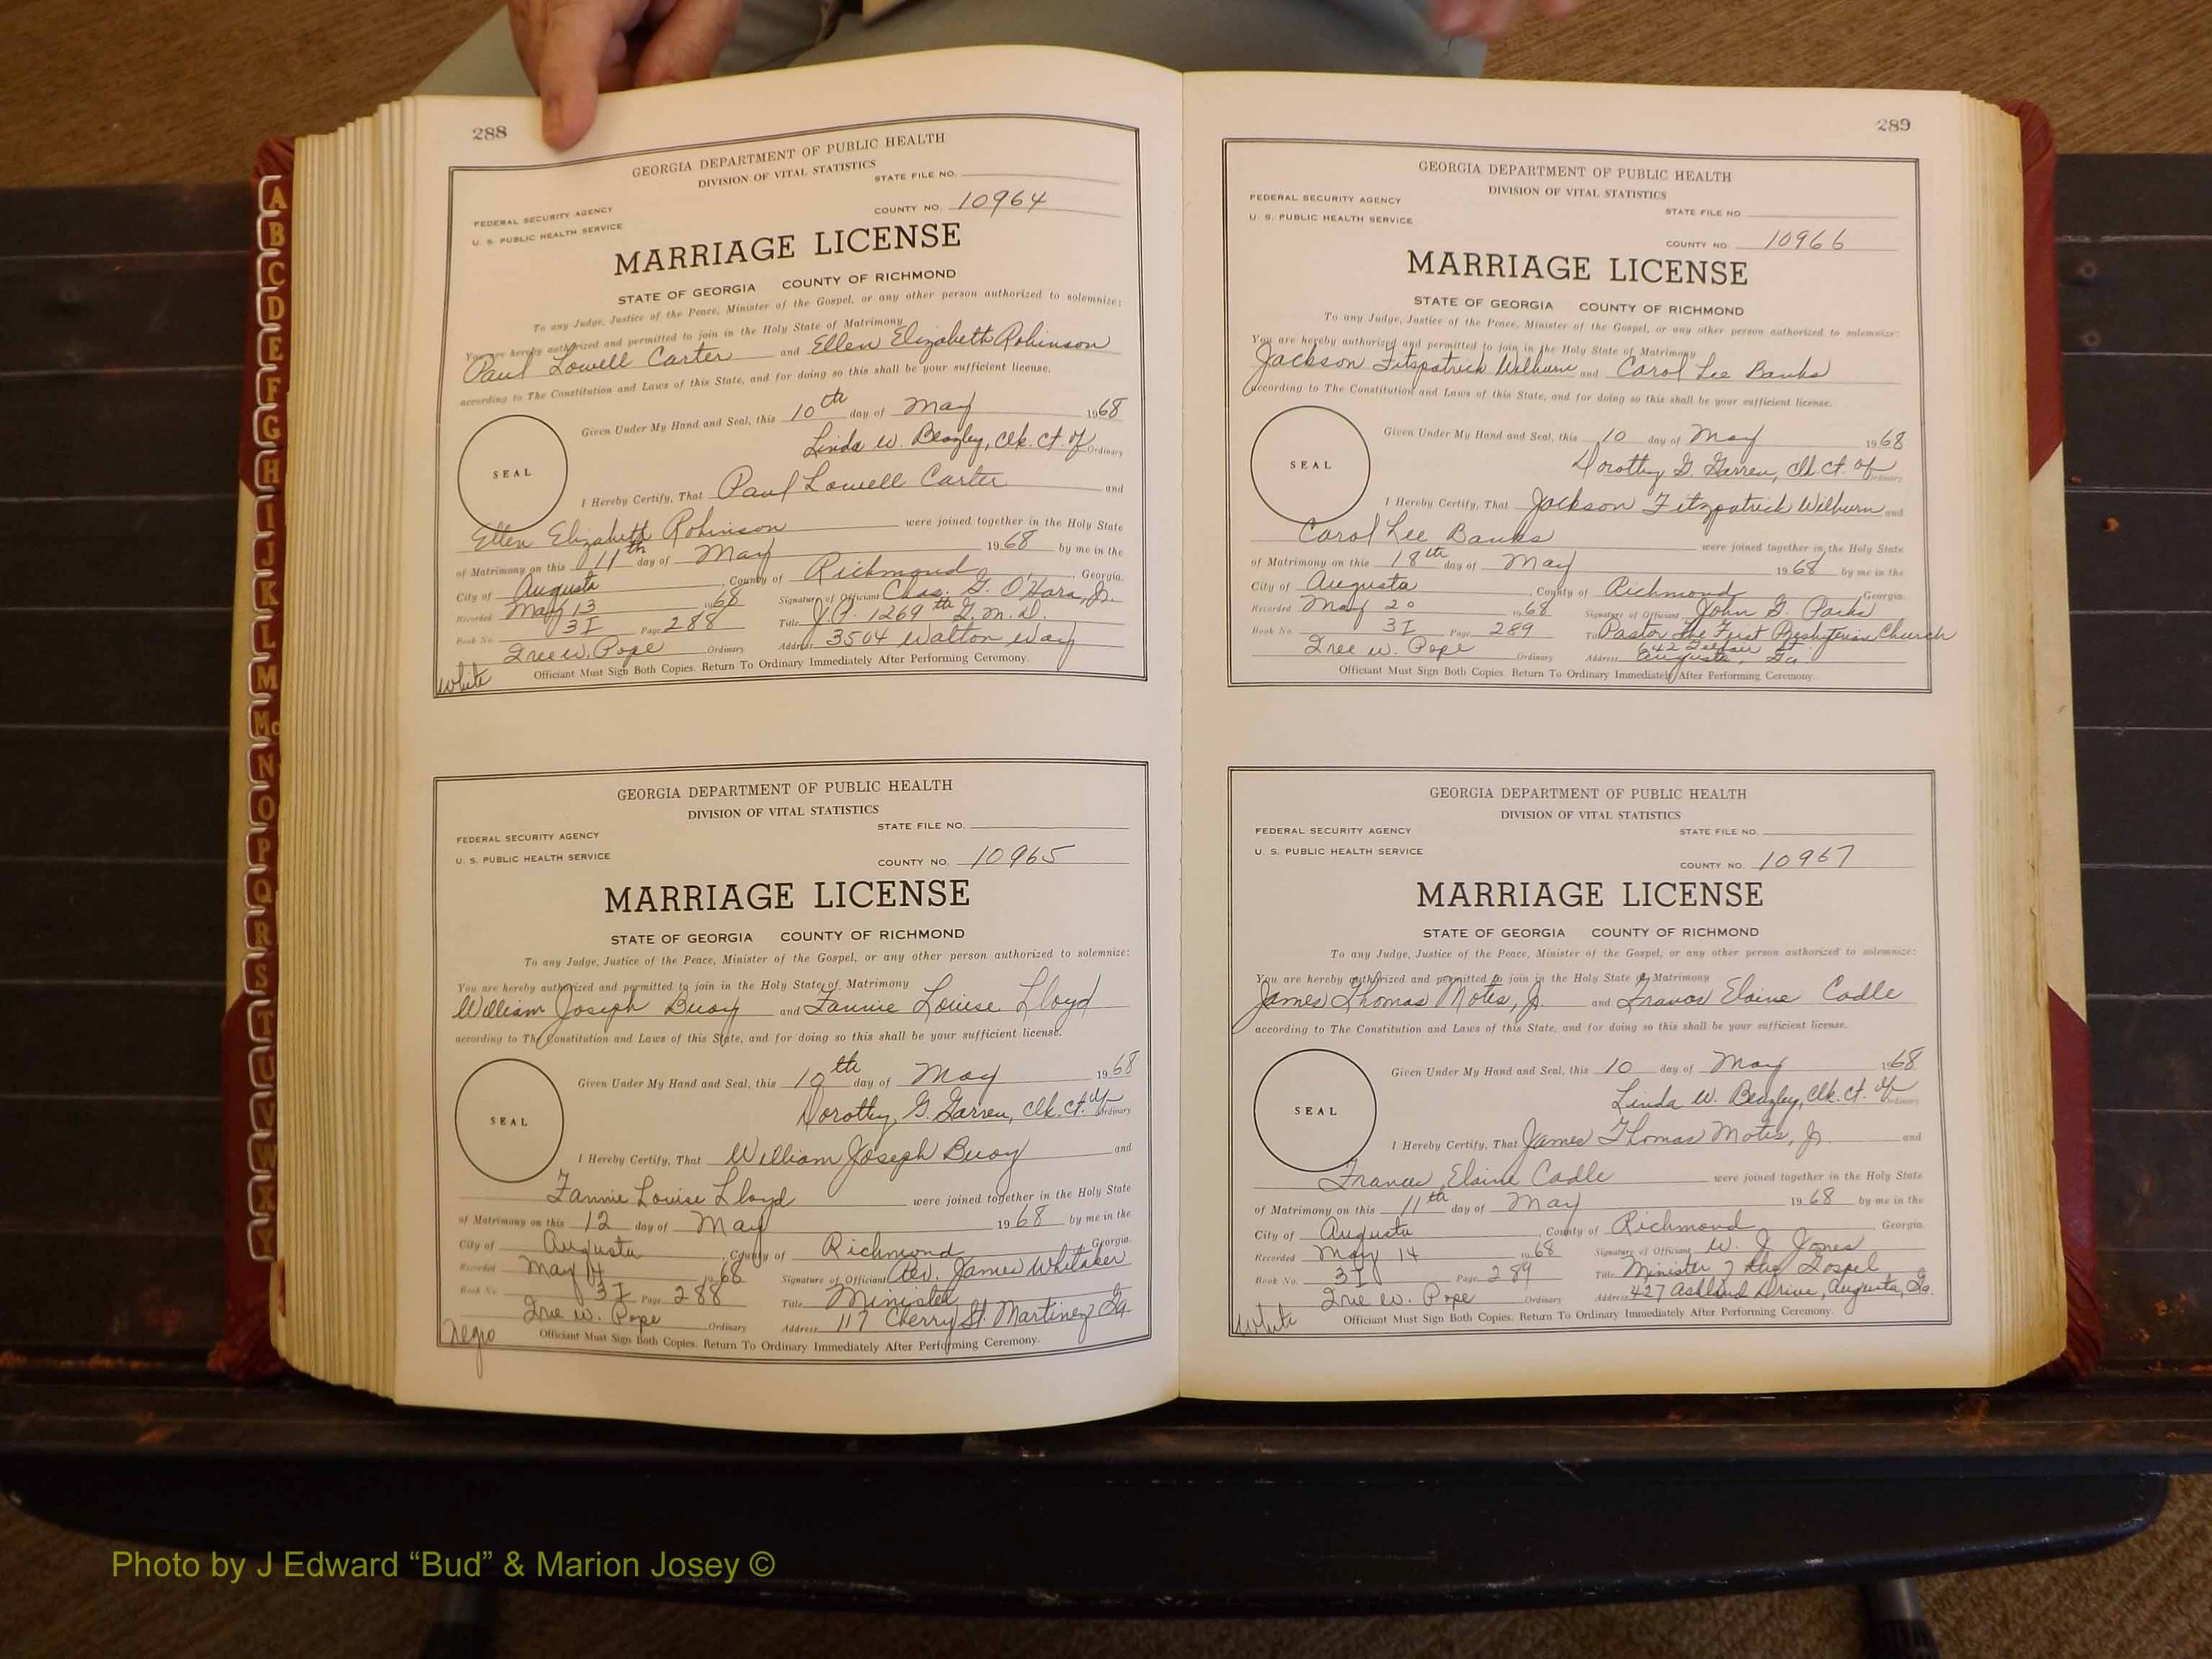 A
B
C
D
E
F
G
H
I
J
K
L
M
Mc
N
O
P
Q
R
S
T
U
V
W
X
Y
288
GEORGIA DEPARTMENT OF PUBLIC HEALTH
DIVISION OF VITAL STATISTICS
STATE FILE NO.
FEDERAL SECURITY AGENCY
U. S. PUBLIC HEALTH SERVICE
COUNTY NO. 10964
MARRIAGE LICENSE
STATE OF GEORGIA COUNTY OF RICHMOND
To any Judge, Justice of the Peace, Minister of the Gospel, or any other person authorized to solemnize:
You are hereby authorized and permitted to join in the Holy State of Matrimony
Paul Lowell Carter and Ellen Elizabeth Robinson
according to The Constitution and Laws of this State, and for doing so this shall be your sufficient license.
Given Under My Hand and Seal, this 10th day of May 1968
Linda W. Beazley, Clk. Ct. of Ordinary
SEAL
I Hereby Certify, That Paul Lowell Carter and
Ellen Elizabeth Robinson were joined together in the Holy State
of Matrimony on this 11th day of May 1968 by me in the
City of Augusta, County of Richmond, Georgia.
Recorded May 13 1968 Signature of Officiant Chas. G. O'Hara, Jr.
Book No. 3I Page 288 Title J.P. 1269th G.M.D.
Ordinary Address 3504 Walton Way
W. Pope
Officiant Must Sign Both Copies. Return To Ordinary Immediately After Performing Ceremony.
White
GEORGIA DEPARTMENT OF PUBLIC HEALTH
DIVISION OF VITAL STATISTICS
STATE FILE NO.
FEDERAL SECURITY AGENCY
U. S. PUBLIC HEALTH SERVICE
COUNTY NO. 10965
MARRIAGE LICENSE
STATE OF GEORGIA COUNTY OF RICHMOND
To any Judge, Justice of the Peace, Minister of the Gospel, or any other person authorized to solemnize:
You are hereby authorized and permitted to join in the Holy State of Matrimony
William Joseph Buoy and Fannie Louise Lloyd
according to The Constitution and Laws of this State, and for doing so this shall be your sufficient license.
Given Under My Hand and Seal, this 10th day of May 1968
Dorothy G. Garren, Clk. Ct. of Ordinary
SEAL
I Hereby Certify, That William Joseph Buoy and
Fannie Louise Lloyd were joined together in the Holy State
of Matrimony on this 12 day of May 1968 by me in the
City of Augusta, County of Richmond, Georgia.
Recorded May 14 1968 Signature of Officiant Rev. James Whitaker
Book No. 3I Page 288 Title Minister
W. Pope Ordinary Address 117 Cherry St. Martinez Ga
Officiant Must Sign Both Copies. Return To Ordinary Immediately After Performing Ceremony.
Negro
289
GEORGIA DEPARTMENT OF PUBLIC HEALTH
DIVISION OF VITAL STATISTICS
FEDERAL SECURITY AGENCY
U. S. PUBLIC HEALTH SERVICE
STATE FILE NO
COUNTY NO 10966
MARRIAGE LICENSE
STATE OF GEORGIA COUNTY OF RICHMOND
To any Judge, Justice of the Peace, Minister of the Gospel, or any other person authorized to solemnize:
You are hereby authorized and permitted to join in the Holy State of Matrimony
Jackson Fitzpatrick Wilburn and Carol Lee Banks
according to The Constitution and Laws of this State, and for doing so this shall be your sufficient license.
Given Under My Hand and Seal, this 10 day of May 1968
Dorothy G. Garren, Clk. Ct. of Ordinary
SEAL
I Hereby Certify, That Jackson Fitzpatrick Wilburn and
Carol Lee Banks were joined together in the Holy State
of Matrimony on this 18th day of May 1968 by me in the
City of Augusta, County of Richmond Georgia.
Recorded May 20 1968 Signature of Officiant John G. Parks
Book No. 3I Page 289 Title Pastor The First Presbyterian Church
642 Telfair St.
W. Pope Ordinary Address Augusta, Ga.
Officiant Must Sign Both Copies. Return To Ordinary Immediately After Performing Ceremony.
GEORGIA DEPARTMENT OF PUBLIC HEALTH
DIVISION OF VITAL STATISTICS
FEDERAL SECURITY AGENCY
U. S. PUBLIC HEALTH SERVICE
STATE FILE NO.
COUNTY NO. 10967
MARRIAGE LICENSE
STATE OF GEORGIA COUNTY OF RICHMOND
To any Judge, Justice of the Peace, Minister of the Gospel, or any other person authorized to solemnize:
You are hereby authorized and permitted to join in the Holy State of Matrimony
James Thomas Motes, Jr. and Frances Elaine Cadle
according to The Constitution and Laws of this State, and for doing so this shall be your sufficient license.
Given Under My Hand and Seal, this 10 day of May 1968
Linda W. Beazley, Clk. Ct. of Ordinary
SEAL
I Hereby Certify, That James Thomas Motes, Jr. and
Frances Elaine Cadle were joined together in the Holy State
of Matrimony on this 11th day of May 1968 by me in the
City of Augusta, County of Richmond, Georgia.
Recorded May 14 1968 Signature of Officiant W. J. Jones
Book No. 3I Page 289 Title Minister of the Gospel
W. Pope Ordinary Address 427 Ashland Drive, Augusta, Ga.
Officiant Must Sign Both Copies. Return To Ordinary Immediately After Performing Ceremony.
White
Photo by J Edward “Bud” & Marion Josey ©